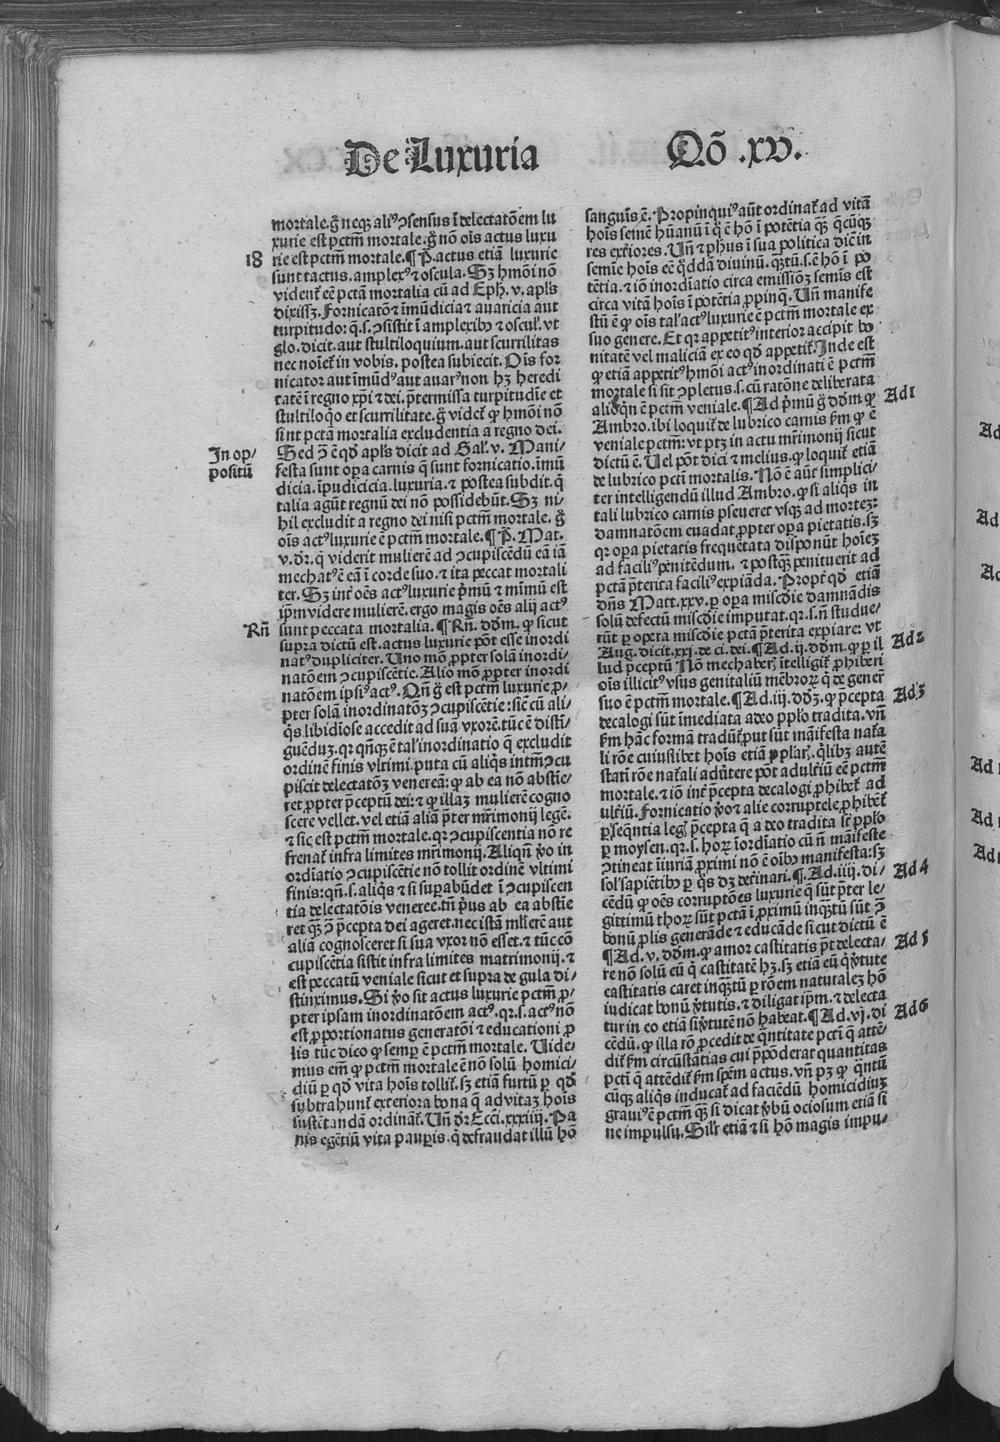 De Luxuria
Qõ .xv.
mortale. g̃ neqꝫ aliꝰ ↄsensus ĩ delectatõem lu
xurie est pctm̃ mortale. g̃ nõ oĩs actus luxu
18
rie est pctm̃ mortale. ¶ P̃. actus etiã luxurie
sunt tactus. amplexꝰ ⁊ oscula. Sꝫ hmõi nõ
vident̃ eẽ pctã mortalia cũ ad Eph̃. v. apl's
dixissꝫ. Fornicatõ ⁊ ĩmũdicia ⁊ auaricia aut
turpitudo: q̃.s. ↄsistit ĩ amplexibꝰ ⁊ oscul'. vt
glo. dicit. aut stultiloquium. aut scurrilitas
nec noĩet̃ in vobis. postea subiecit. Oĩs for
nicator aut ĩmũdꝰ aut auarꝰ non hꝫ heredi
tatẽ ĩ regno xp̃i ⁊ dei. p̃termissa turpitudĩe et
stultiloq̃o et scurrilitate. g̃ videt̃ ꝙ hmõi nõ
sint pctã mortalia excludentia a regno dei.
In op-
positũ
Sed ↄ̃ ẽ qd̃ apl's dicit ad Gal'. v. Mani-
festa sunt oꝑa carnis q̃ sunt fornicatio. ĩmũ
dicia. ĩpudicicia. luxuria. ⁊ postea subdit. q̃
talia agũt regnũ dei nõ possidebũt. Sꝫ ni-
hil excludit a regno dei nisi pctm̃ mortale. g̃
oĩs actꝰ luxurie ẽ pctm̃ mortale. ¶ P̃. Mat.
v. dr̃. q̃ viderit mulierẽ ad ↄcupiscẽdũ eã iã
mechatꝰ ẽ eã ĩ corde suo. ⁊ ita peccat mortali
ter. Sꝫ int̃ oẽs actꝰ luxurie p̃mũ ⁊ mĩmũ est
ip̃m videre mulierẽ. ergo magis oẽs alij actꝰ
Rñ
sunt peccata mortalia. ¶ Rñ. dd̃m. ꝙ sicut
supra dictũ est. actus luxurie põt esse inordi
natꝰ dupliciter. Uno mõ ꝓpter solã inordi-
natõem ↄcupiscẽtie. Alio mõ ꝓpter inordi
natõem ipsiꝰ actꝰ. Qñ g̃ est pctm̃ luxurie ꝓ-
pter solã inordinatõꝫ ↄcupiscẽtie: sic̃ cũ ali-
q̃s libidĩose accedit ad suã vxorẽ. tũc ẽ distĩ-
guẽdũꝫ. qꝛ qñqꝫ ẽ tal' inordinatio q̃ excludit
ordinẽ finis vltimi. puta cũ aliq̃s intm̃ ↄcu
piscit delectatõꝫ venereã: ꝙ ab ea nõ abstie-
ret ꝓpter p̃ceptũ dei: ⁊ ꝙ illaꝫ mulierẽ cogno
scere vellet. vel etiã aliã p̃ter mr̃imonij legẽ.
⁊ sic est pctm̃ mortale. qꝛ ↄcupiscentia nõ re
frenat̃ infra limites mr̃imonij. Aliqñ ṽo in
ordiatio ↄcupiscẽtie nõ tollit ordinẽ vltimi
finis: qñ.s. aliq̃s ⁊ si suꝑabũdet ĩ ↄcupiscen
tia delectatõis veneree. tñ p̃us ab ea abstie
ret qꝫ̃ ↄ̃ p̃cepta dei ageret. nec istã mĺierẽ aut
aliã cognosceret si sua vxor nõ esset. ⁊ tũc cõ
cupiscẽtia sistit infra limites matrimonij. ⁊
est peccatũ veniale sicut et supra de gula di-
stinximus. Si ṽo sit actus luxurie pctm̃ ꝓ-
pter ipsam inordinatõem actꝰ. qꝛ.s. actꝰ nõ
est ꝓportionatus generatõi ⁊ educationi ꝓ
lis tũc dico ꝙ semꝑ ẽ pctm̃ mortale. Uide-
mus em̃ ꝙ pctm̃ mortale ẽ nõ solũ homici-
diũ ꝑ qd̃ vita hoĩs tollit̃. sꝫ etiã furtũ ꝑ qd̃
subtrahunt̃ exteriora bona q̃ ad vitaꝫ hoĩs
sustẽtandã ordinãt̃. Uñ dr̃ Ecci. xxxiiij. Pa
nis egẽtiũ vita pauꝑis. q̃ defraudat illũ hõ
sanguĩs ẽ. Propinquiꝰ aũt ordinat̃ ad vitã
hoĩs semẽ hũanũ ĩ q̃ ẽ hõ ĩ potẽtia qꝫ̃ q̃cũqꝫ
res ext̃iores. Uñ ⁊ pħus ĩ sua politica dic̃ in
semĩe hoĩs eẽ q̃ddã diuinũ. qꝫ̃tũ.s. ẽ hõ ĩ po
tẽtia. ⁊ iõ inordĩatio circa emissiõꝫ semĩs est
circa vitã hoĩs ĩ potẽtia ꝓpinq̃. Uñ manife
stũ ẽ ꝙ oĩs tal' actꝰ luxurie ẽ pctm̃ mortale ex
suo genere. Et qꝛ appetitꝰ interior accipit bo
nitatẽ vel maliciã ex eo qd̃ appetit̃. Inde est
ꝙ etiã appetitꝰ hmõi actꝰ inordinati ẽ pctm̃
mortale si sit ↄpletus.s. cũ ratõne deliberata
Ad 1
alioq̃n ẽ pctm̃ veniale. ¶ Ad p̃mũ g̃ dd̃m ꝙ
Ambro. ibi loquit̃ de lubrico carnis ẜm ꝙ ẽ
veniale pctm̃: vt ptꝫ in actu mr̃imonij sicut
dictũ ẽ. Uel põt dici ⁊ melius. ꝙ loquit̃ etiã
de lubrico pctĩ mortalis. Nõ ẽ aũt simplici-
ter intelligendũ illud Ambro. ꝙ si aliq̃s in
tali lubrico carnis ꝑseueret vsqꝫ ad morteꝫ:
damnatõem euadat ꝓpter oꝑa pietatis. sꝫ
qꝛ oꝑa pietatis frequẽtata dispõnũt hoĩeꝫ
ad faciliꝰ penitẽdum. ⁊ postqꝫ̃ penituerit ad
pctã p̃terita faciliꝰ expiãda. Propt̃ qd̃ etiã
dñs Matt. xxv. ꝑ oꝑa mĩsc̃die damnãdis
solũ defectũ mĩsc̃die imputat. qꝛ.s. ñ studue-
rũt ꝑ opera mĩsc̃die pctã p̃terita expiare: vt
Ad 2
Aug. dicit. xxj. de ci. dei. ¶ Ad. ij. dd̃m. ꝙ ꝑ il
lud p̃ceptũ Nõ mechaber̃, ĩtelligit̃ ꝓhiberi
oĩs illicitꝰ vsus genitaliũ mẽbroꝝ q̃ de gener̃
Ad 3
suo ẽ pctm̃ mortale. ¶ Ad. iij. dd̃ꝫ. ꝙ p̃cepta
decalogi sũt ĩmediata a deo ppl'o tradita. vñ
ẜm hãc formã tradũt̃ ꝓut sũt mãifesta nat̃a
li rõe cuiuslibet hoĩs etiã pplar̃. q̃libꝫ autẽ
statĩ rõe nat̃ali adũtere põt adult̃iũ eẽ pctm̃
mortale. ⁊ iõ int̃ p̃cepta decalogi ꝓhibet̃ ad
ult̃iũ. Fornicatio ṽo ⁊ alie corruptele ꝓhibẽt̃
ꝑ seq̃ntia leg̃ p̃cepta q̃ a deo tradita st̃ ppl'o
ꝑ moysen. qꝛ.s. hoꝝ ĩordĩatio cũ ñ mãifeste
ↄtineat ĩiuriã ꝓximi nõ ẽ oĩbꝰ manifesta: sꝫ
Ad 4
sol' sapiẽtibꝰ ꝑ q̃s dꝫ det̃inari. ¶. Ad. iiij. di-
cẽdũ ꝙ oẽs corruptões luxurie q̃ sũt p̃ter le-
gittimũ thoꝝ sũt pctã ĩ ꝓximũ inqꝫ̃tũ sũt ↄ̃
bonũ ꝓlis generãde ⁊ educãde sicut dictũ ẽ
Ad 5
¶ Ad. v. dd̃m. ꝙ amor castitatis p̃t delecta-
re nõ solũ eũ q̃ castitatẽ hꝫ. sꝫ etiã eũ q̃ ṽtute
castitatis caret inqꝫ̃tũ ꝑ rõem naturaleꝫ hõ
iudicat bonũ ṽtutis. ⁊ diligat ip̃m. ⁊ delecta
Ad 6
tur in eo etiã si ṽtutẽ nõ habeat. ¶ Ad. vj. di
cẽdũ. ꝙ illa rõ ꝓcedit de q̃ntitate pctĩ q̃ attẽ-
dit̃ ẜm circũstãtias cui p̃põderat quantitas
pctĩ q̃ attẽdit̃ ẜm sp̃em actus. vñ pꝫ ꝙ q̃ntũ
cũqꝫ aliq̃s inducat̃ ad faciẽdũ homicidiuꝫ
grauiꝰ ẽ pctm̃ qꝫ̃ si dicat ṽbũ ociosum etiã si
ne impulsu. Sil'r etiã ⁊ si hõ magis impu-
Ad
Ad
Ad
Ad
Ad
Ad